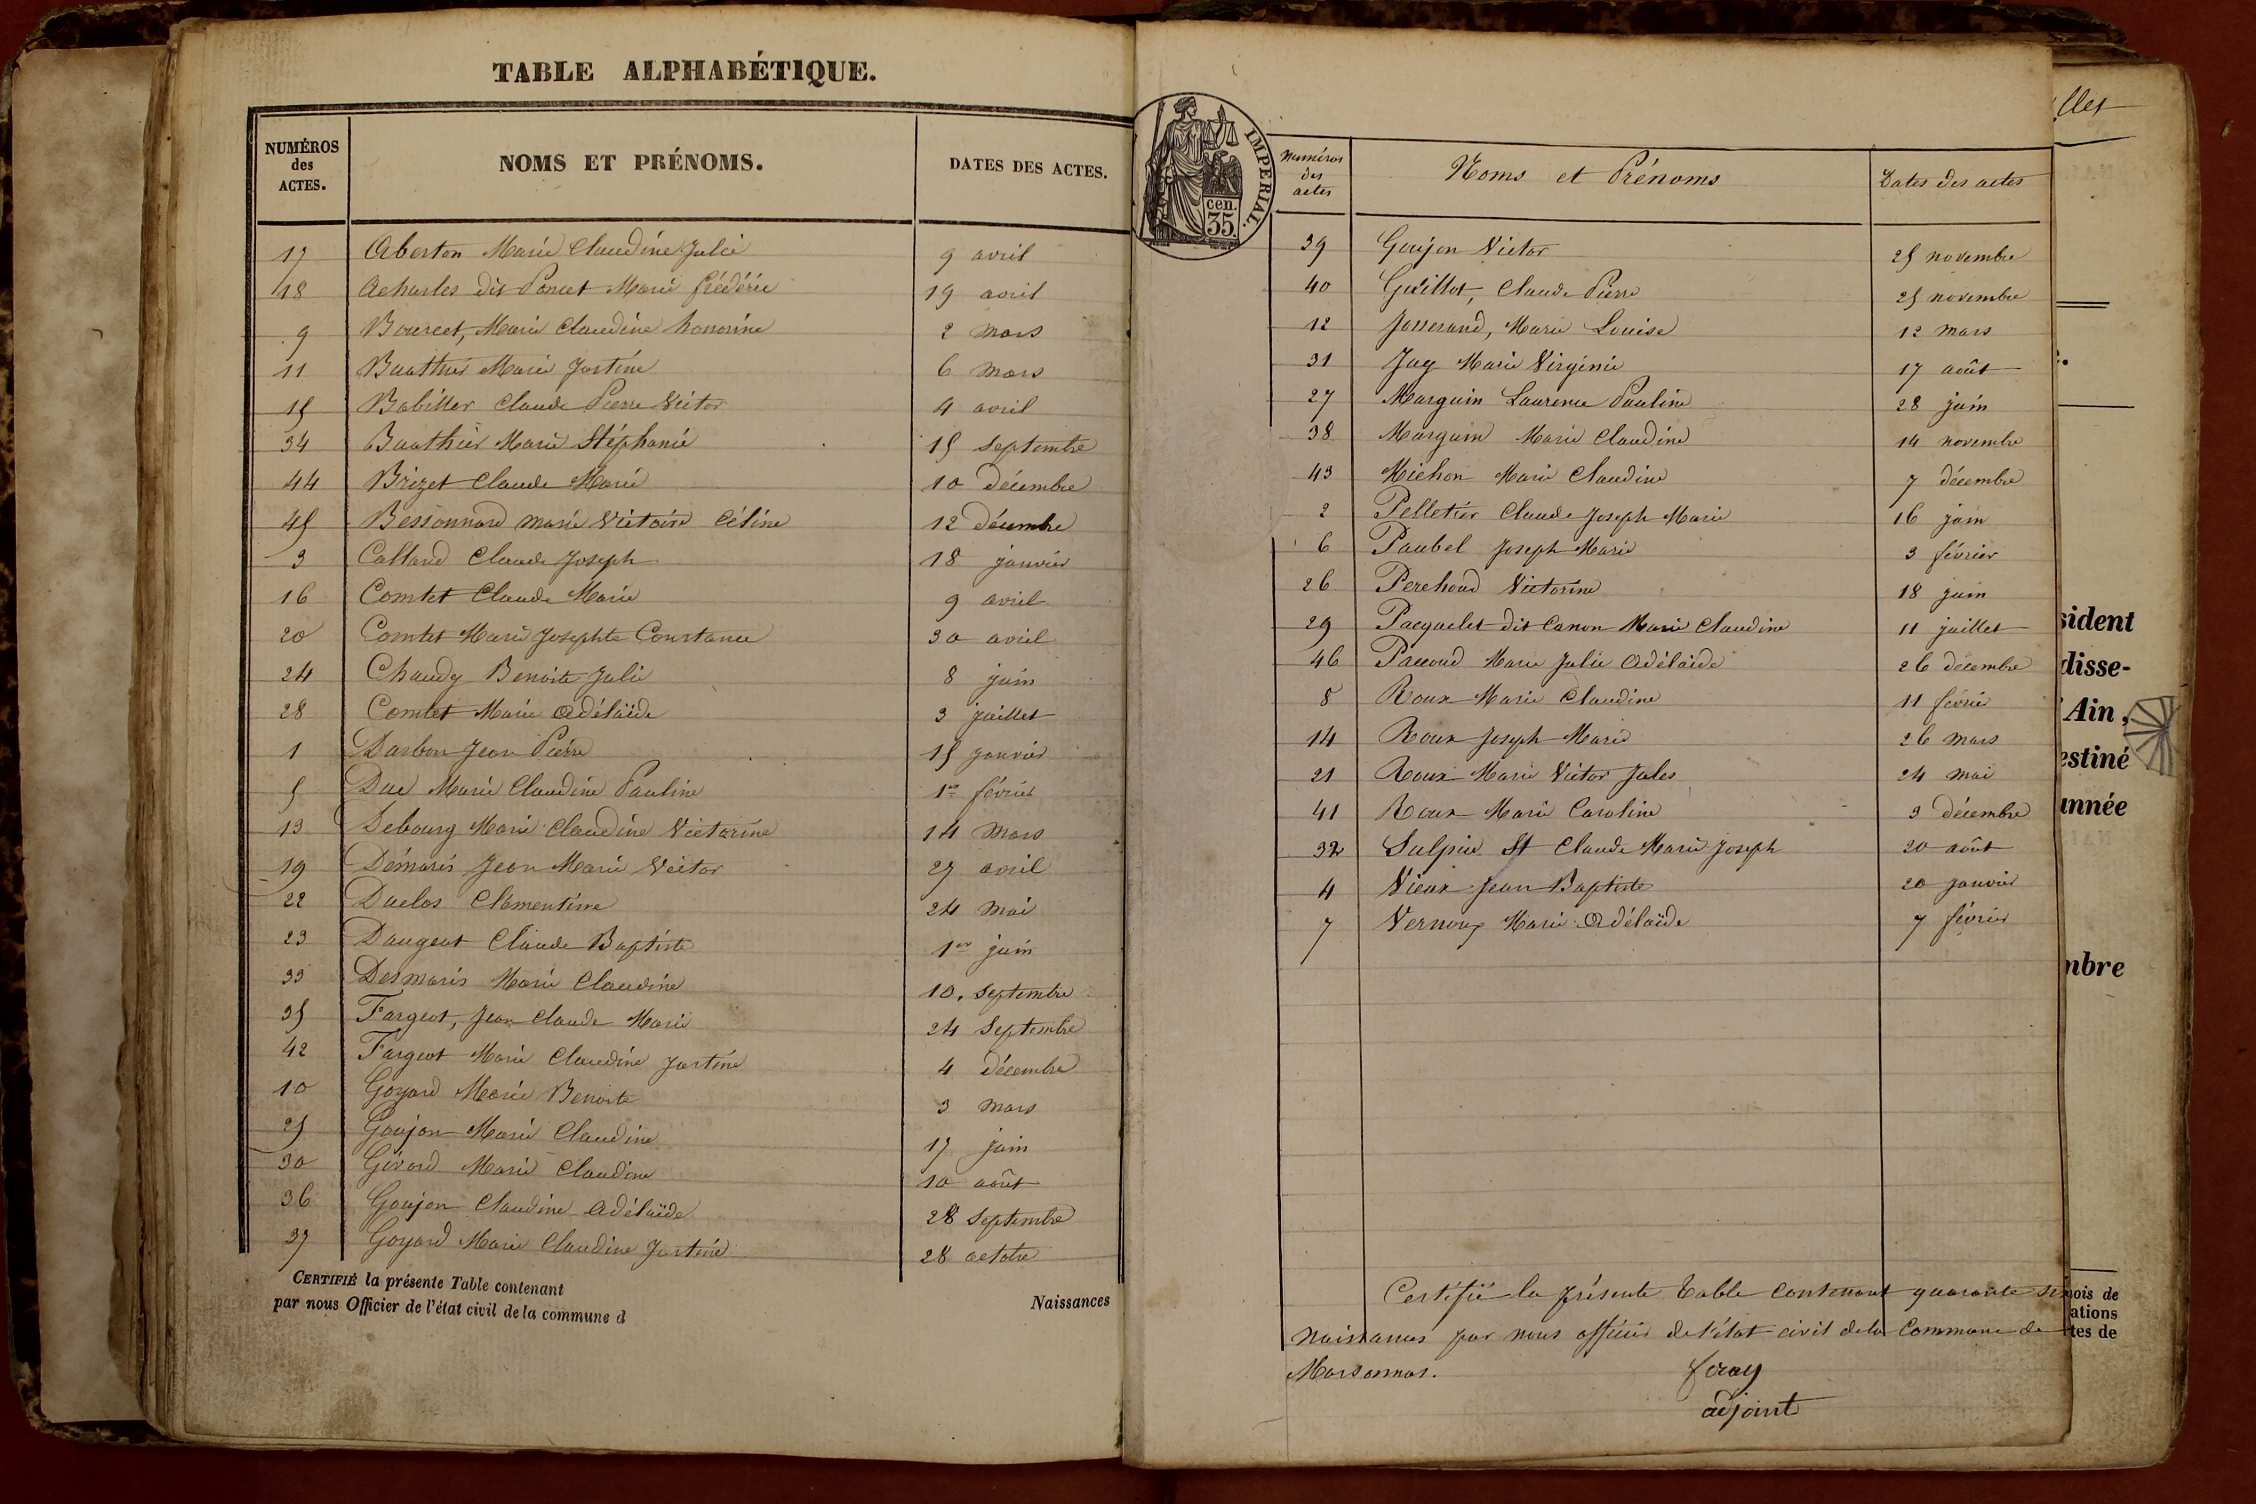 TABLE ALPHABÉTIQUE.
NUMÉROS des ACTES. NOMS ET PRÉNOMS. DATES DES ACTES.
17 Aberton Marie Claudine Julie 9 avril
18 Acharles dit Poncet Marie frédéric 19 avril
9 Bourcet, Marie Claudine honorine 2 mars
11 Buathier Marie Justine 6 mars
15 Babiller Claude Pierre Victor 4 avril
34 Buathier Marie Stéphanie 15 septembre
44 Brizet Claude Marie 10 décembre
45 Bessonnard marie Victoire Céline 12 décembre
3 Calland Claude Joseph 18 janvier
16 Comtet Claude Marie 9 avril
20 Comtet Marie Josephte Constance 30 avril
24 Chaudy Benoite Julie 8 juin
28 Comtet Marie adélaïde 3 juillet
1 Darbon Jean Pierre 15 janvier
5 Duc Marie Claudine Pauline 1er février
13 Debourg Marie Claudine Victorine 14 mars
19 Démaris Jean Marie Victor 27 avril
22 Duclos Clémentine 24 mai
23 Daugeat Claude Baptiste 1er juin
33 Desmaris Marie Claudine 10. septembre
35 Fargeot, Jean Claude Marie 24 Septembre
42 Fargeot Marie Claudine Justine 4 décembre
10 Goyard Marie Benoite 3 mars
25 Goujon Marie Claudine 17 juin
30 Girard Marie Claudine 10 août
36 Goujon Claudine adélaïde 28 septembre
37 Goyard Marie Claudine Justine 28 octobre
CERTIFIÉ la présente Table contenant Naissances
par nous Officier de l'état civil de la commune d
IMPÉRIAL.
cen.
35.
Numéros des actes Noms et Prénoms Dates des actes
39 Goujon Victor 25 novembre
40 Guillot, Claude Pierre 25 novembre
12 Josserand, Marie Louise 12 mars
31 Jay Marie Virginie 17 août
27 Marguin Laurence Pauline 28 juin
38 Marguin Marie Claudine 14 novembre
43 Michon Marie Claudine 7 décembre
2 Pelletier Claude Joseph Marie 16 jain
6 Paubel Joseph Marie 3 février
26 Perchoud Victorine 18 juin
29 Pacquelet dit Canon Marie Claudine 11 juillet
46 Paccoud Marie Julie Adélaïde 26 décembre
8 Roux Marie Claudine 11 février
14 Roux Joseph Marie 26 mars
21 Roux Marie Victor Jules 24 mai
41 Roux Marie Caroline 3 décembre
32 Sulpice St Claude Marie Joseph 20 août
4 Vieux Jean Baptiste 20 janvier
7 Vernoux Marie Adélaïde 7 février
Certifié la présente Table contenant quarante six
Naissances par nous officier de l'état civil de la Commune de
Marsonnas.
feray
adjoint
llet
sident
disse-
Ain,
estiné
année
mbre
ois de
ations
tes de